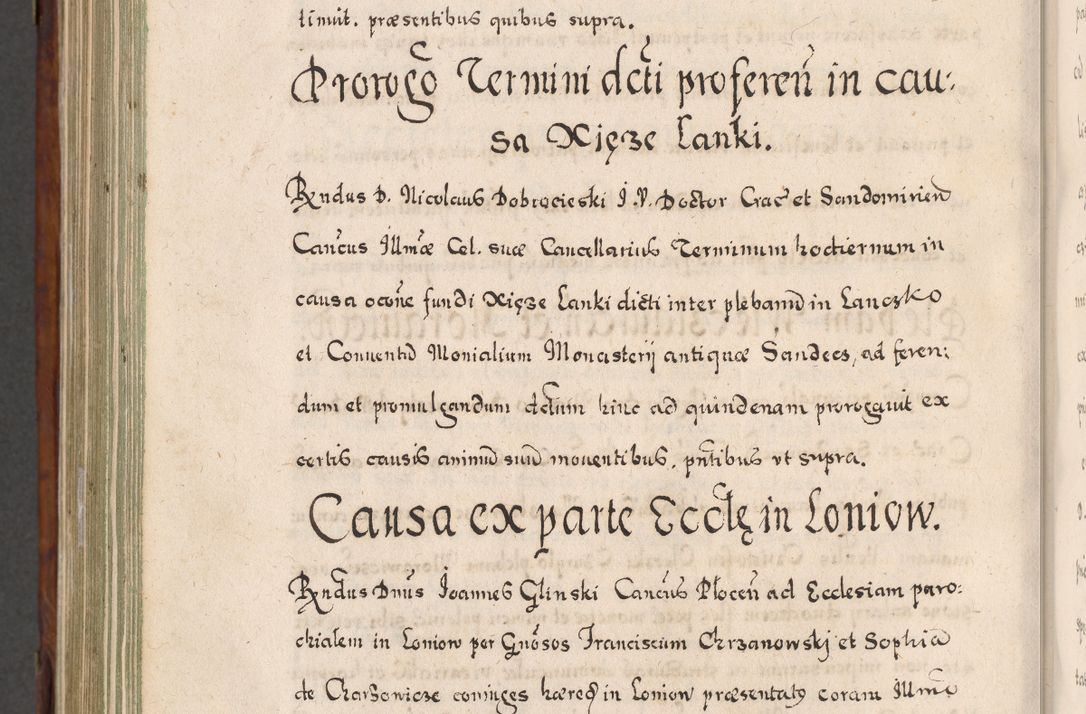 timuit. præsentibus quibus supra.
Prorogõ Termini dcti profereñ in cau-
sa Xięze Lanki.
Rndus D. Nicolaus Dobrocieski I. V. Doctor Crac et Sandomirieñ
Cancus Illmæ Cel. suæ Cancellarius Terminum hodiernum in
causa occne fundi Xięze Lanki dicti inter plebanũ in Lanczko
et Conventũ Monialium Monasterij antiquæ Sandecz, ad feren:
dum et promulgandum dctum hinc ad quindenam prorogavit ex
certis causis animũ suũ moventibus, pntibus vt supra.
Causa ex parte Ecclę in Loniow.
Rndus Dnus Joannes Glinski Cancus Płoceñ ad Ecclesiam paro:
chialem in Loniow per Gnosos Franciscum Chrzanowskj et Sophiã
de Charzowicze coniuges hæred in Loniow præsentatq coram Illmo